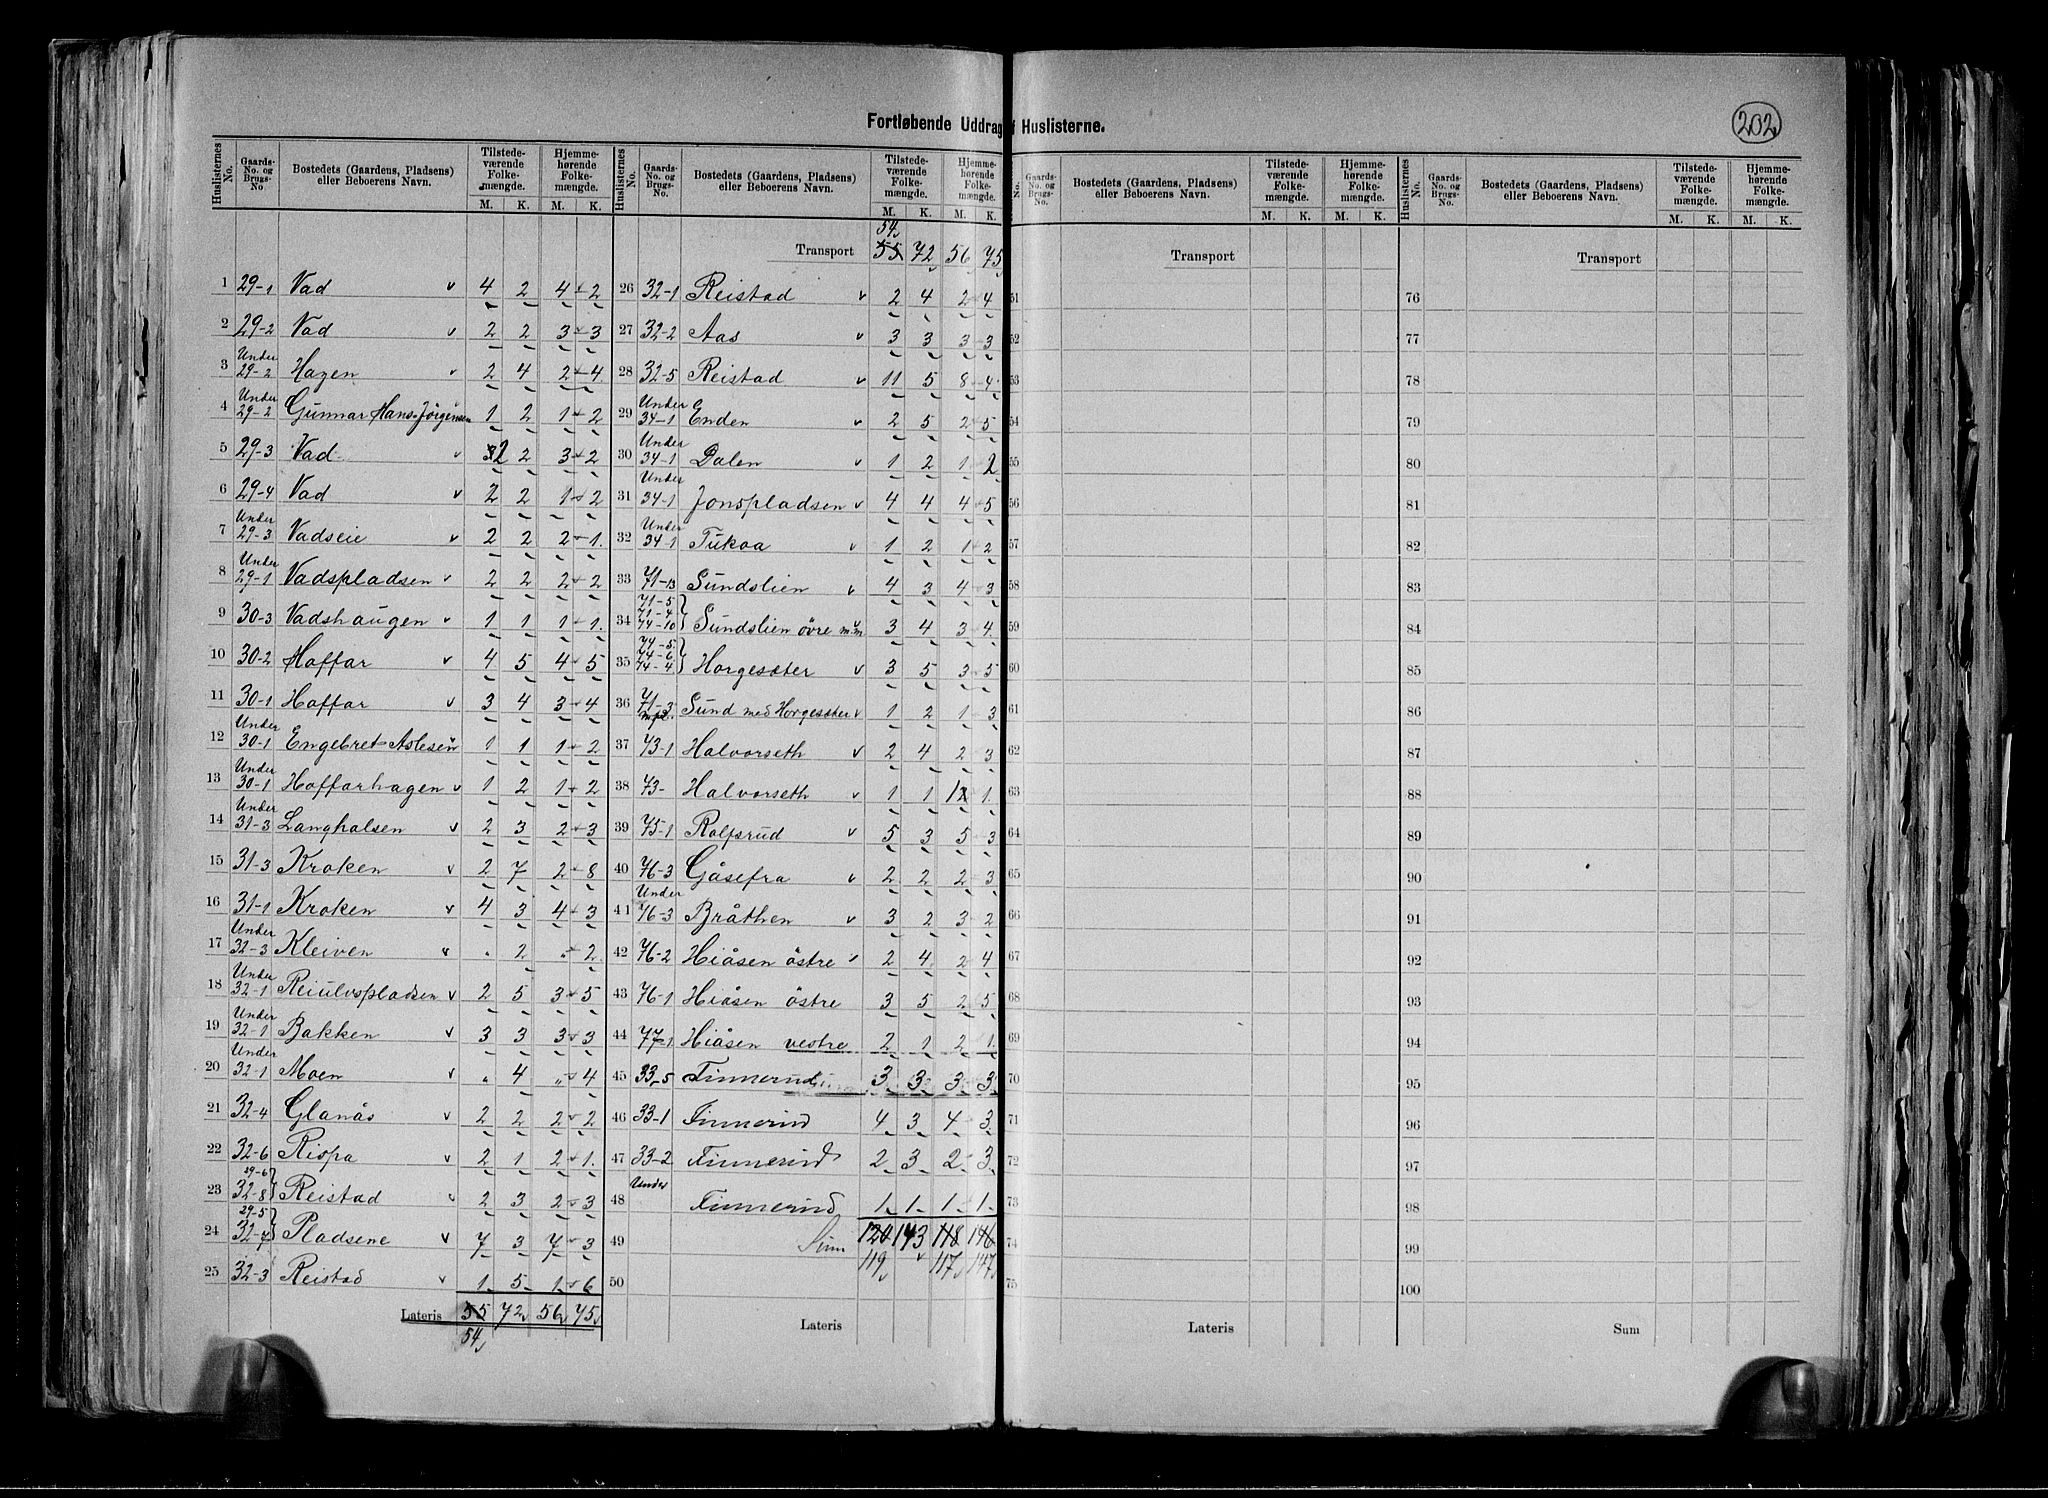 Fortløbende Uddrag f Huslisterne.
202
Huslisternes No. Gaards-No. og Brugs-No Bostedets (Gaardens, Pladsens) eller Beboerens Navn. Tilstedeværende Folkemængde. M. K. Hjemmehørende Folkemængde. M. K.
1 29-1 Vad v 4 2 4 2
2 29-2 Vad v 2 2 3 3
3 Under 29-2 Hagen v 2 4 2 4
4 Under 29-2 Gunnar Hans-Jörgensen 1 2 1 2
5 29-3 Vad v 2 2 3 2
6 29-4 Vad v 2 2 1 2
7 Under 29-3 Vadseie v 2 2 2 1
8 Under 29-1 Vadspladsen v 2 2 2 2
9 30-3 Vadshaugen v 1 1 1 1
10 30-2 Haffar v 4 5 4 5
11 30-1 Haffar v 3 4 3 4
12 Under 30-1 Engebret Aslesen 1 1 1 2
13 Under 30-1 Haffarhagen v 1 2 1 2
14 Under 31-3 Langhalsen v 2 3 2 3
15 31-3 Kroken v 2 7 2 8
16 31-1 Kroken v 4 3 4 3
17 Under 32-3 Kleiven v " 2 " 2
18 Under 32-1 Reiulvspladsen v 2 5 3 5
19 Under 32-1 Bakken v 3 3 3 3
20 Under 32-1 Moen v " 4 " 4
21 32-4 Glanås v 2 2 2 2
22 32-6 Rispa v 2 1 2 1
23 29-6 32-8 Reistad v 2 3 2 3
24 29-5 32-7 Pladsene v 7 3 7 3
25 32-3 Reistad v 1 5 1 6
Lateris 55 72 56 75
54
Huslisternes No. Gaards-No. og Brugs-No. Bostedets (Gaardens, Pladsens) eller Beboerens Navn. Tilstedeværende Folkemængde. M. K. Hjemmehørende Folkemængde. M. K.
54
Transport 55 72 56 75
26 32-1 Reistad v 2 4 2 4
27 32-2 Aas v 3 3 3 3
28 32-5 Reistad v 11 5 8 4
29 Under 34-1 Enden v 2 5 2 5
30 Under 34-1 Dalen v 1 2 1 2
31 Under 34-1 Jonspladsen v 4 4 4 5
32 Under 34-1 Tukaa v 1 2 1 2
33 71-13 Sundslien v 4 3 4 3
34 71-5 71-4 74-10 Sundslien övre m.m 3 4 3 4
35 74-5 74-6 74-4 Horgesæter v 3 5 3 5
36 71-3 Sund med Horgesæter v 1 2 1 3
37 73-1 Halvorseth v 2 4 2 3
38 73- Halvorseth v 1 1 1 1
39 75-1 Rolfsrud v 5 3 5 3
40 76-3 Gåsefra v 2 2 2 3
41 Under 76-3 Bråthen v 3 2 3 2
42 76-2 Hiåsen östre v 2 4 2 4
43 76-1 Hiåsen östre 3 5 2 5
44 77-1 Hiåsen vestre 2 1 2 1
45 33-5 Finnerud 3 3 3 3
46 33-1 Finnerud 4 3 4 3
47 33-2 Finnerud 2 3 2 3
48 Under Finnerud 1 1 1 1
49 Sum 120 143 118 146
50 119 v 117 147
Lateris
No. Gaards-No. og Brugs-No. Bostedets (Gaardens, Pladsens) eller Beboerens Navn. Tilstedeværende Folkemængde. M. K. Hjemmehørende Folkemængde. M. K.
Transport
51
52
53
54
55
56
57
58
59
60
61
62
63
64
65
66
67
68
69
70
71
72
73
74
75
Lateris
Huslisternes No. Gaards-No. og Brugs-No. Bostedets (Gaardens, Pladsens) eller Beboerens Navn. Tilstedeværende Folkemængde. M. K. Hjemmehørende Folkemængde. M. K.
Transport
76
77
78
79
80
81
82
83
84
85
86
87
88
89
90
91
92
93
94
95
96
97
98
99
100
Sum